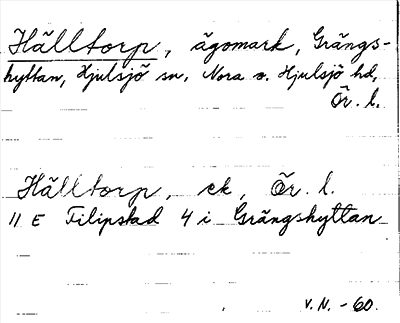 Hälltorp, ägomark, Grängs-
hyttan, Hjulsjö sn, Nora o. Hjulsjö hd,
Ör. l.
Hälltorp, ek, Ör. l.
11 E Filipstad 4 i Grängshyttan
V.N. -60.